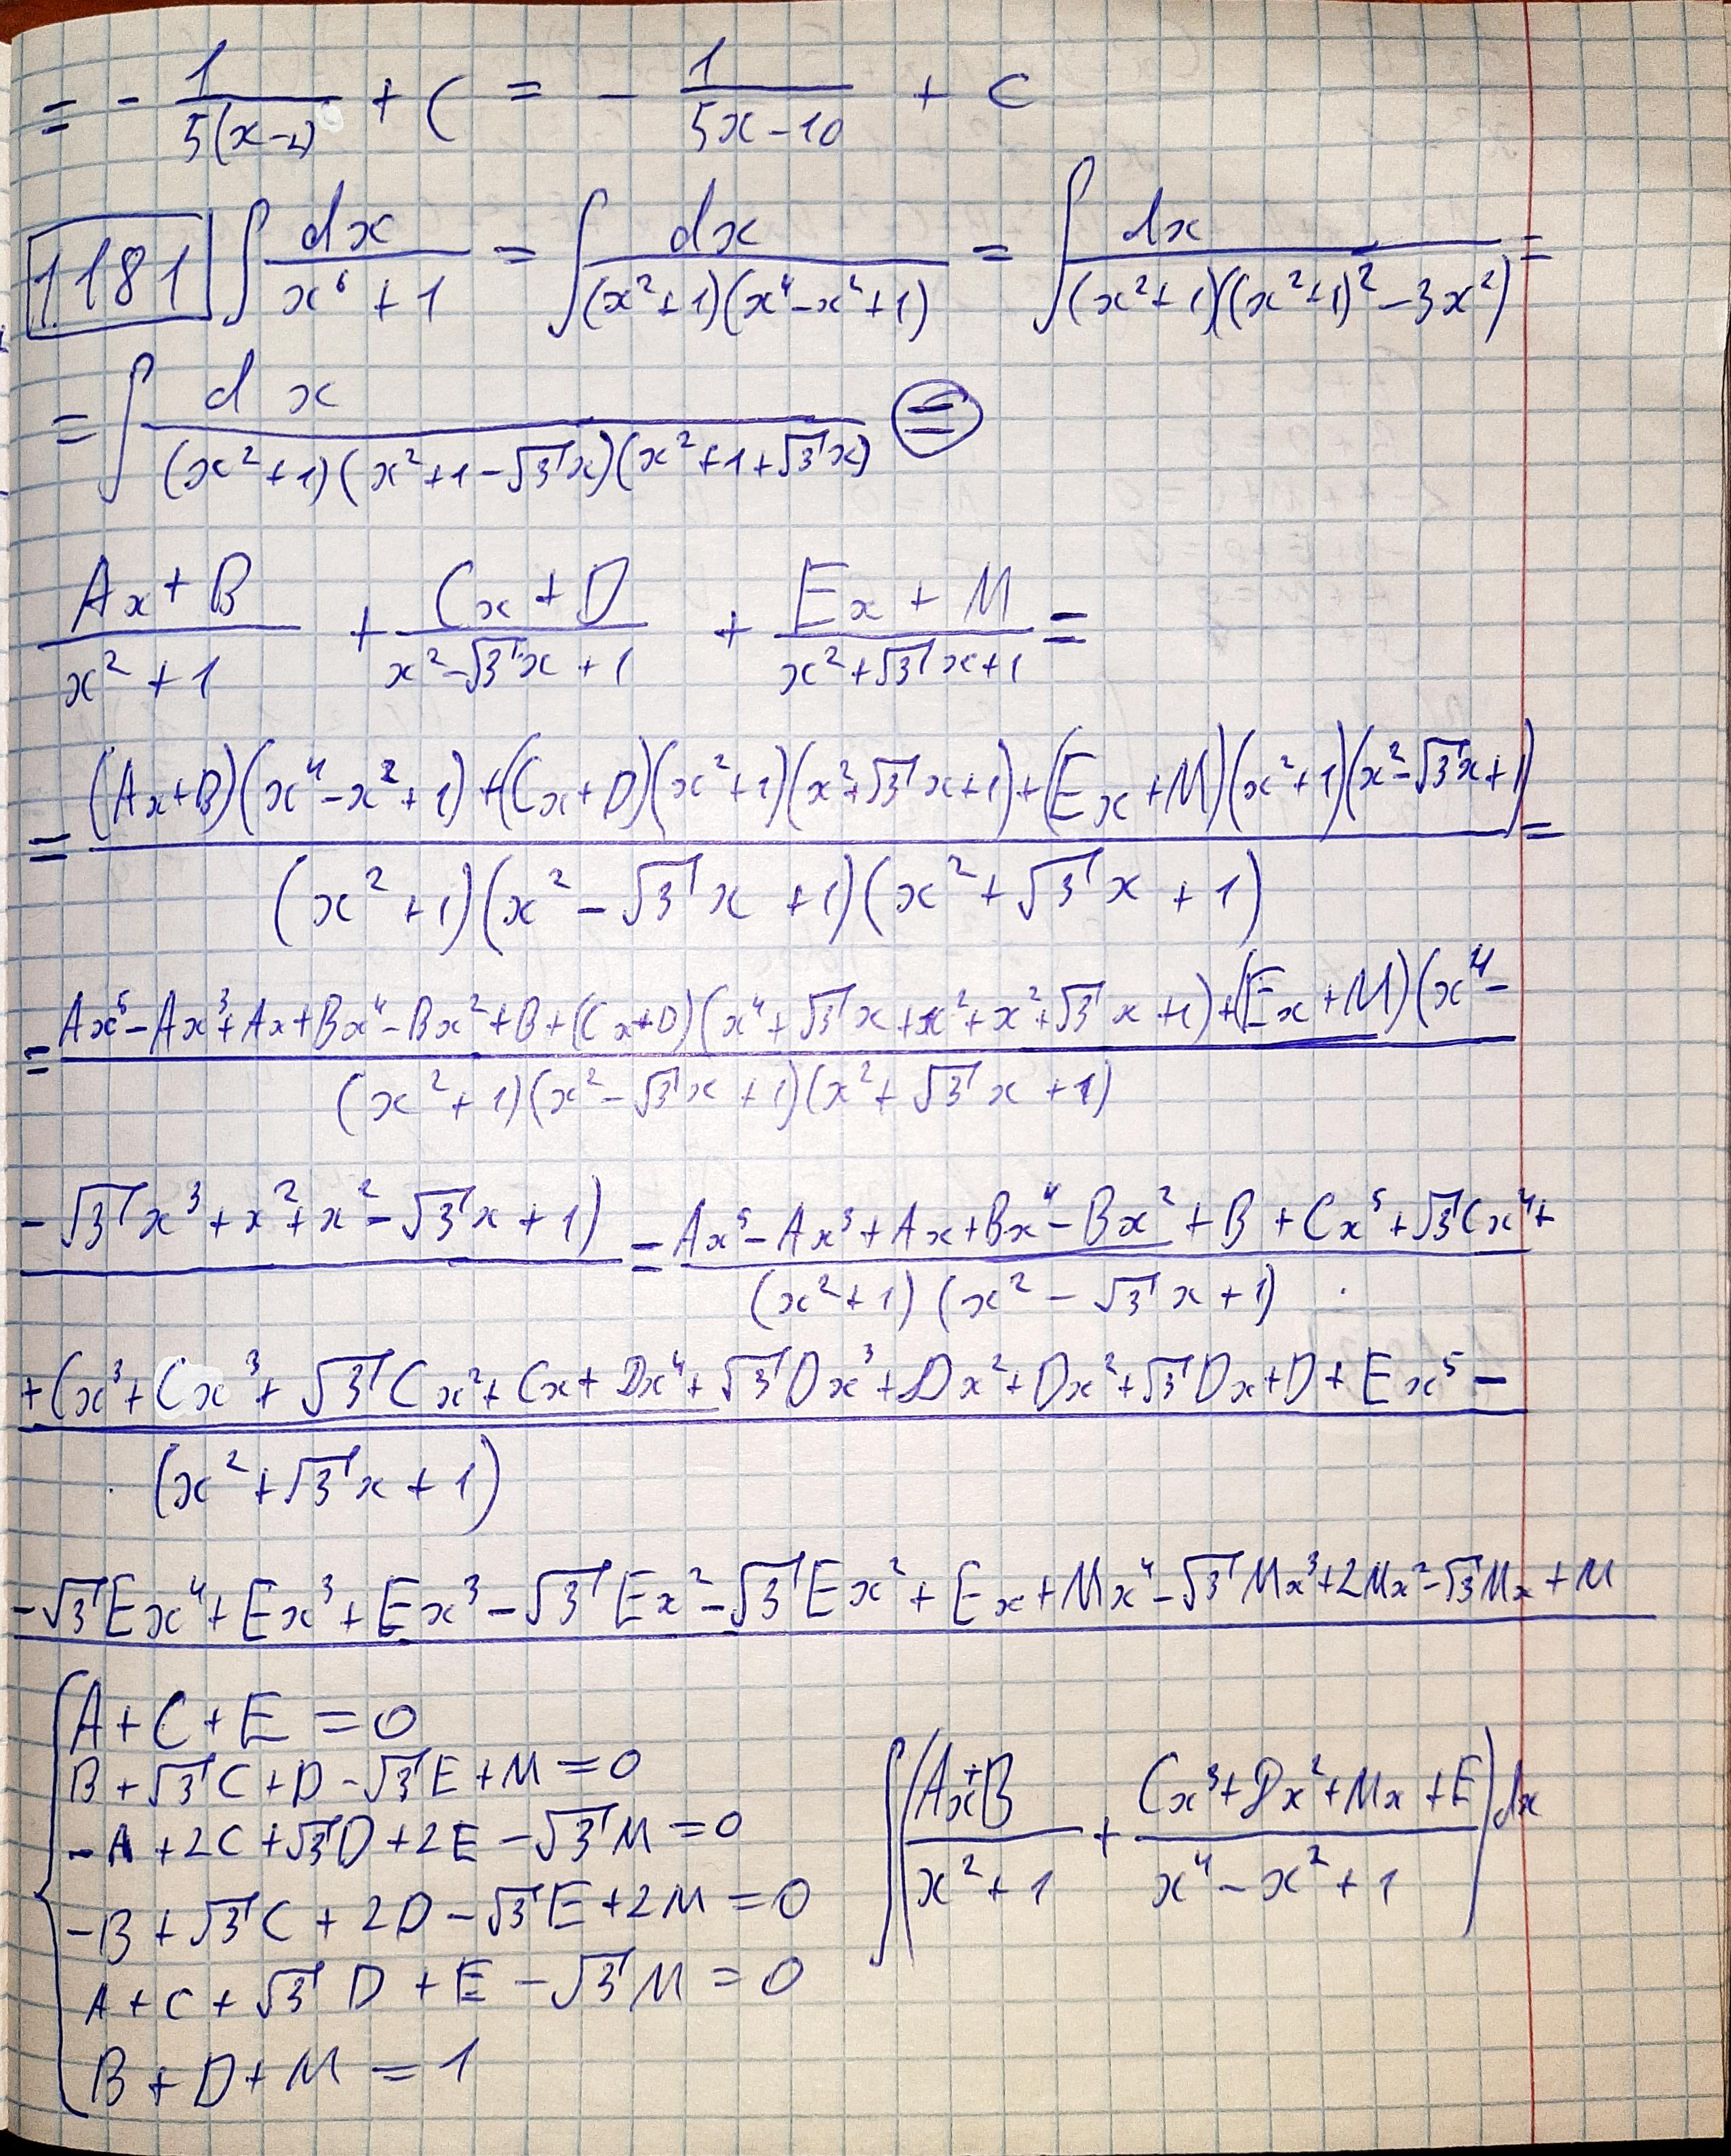 = - 1/(5(x-2)) + C = - 1/(5x-10) + C
1181 ∫ dx/(x⁶+1) = ∫ dx/((x²+1)(x⁴-x²+1)) = ∫ dx/((x²+1)((x²+1)²-3x²)) =
= ∫ dx/((x²+1)(x²+1-√3x)(x²+1+√3x)) =
(Ax+B)/(x²+1) + (Cx+D)/(x²-√3x+1) + (Ex+M)/(x²+√3x+1) =
= ((Ax+B)(x⁴-x²+1)+(Cx+D)(x²+1)(x²+√3x+1)+(Ex+M)(x²+1)(x²-√3x+1))/((x²+1)(x²-√3x+1)(x²+√3x+1)) =
= Ax⁵-Ax³+Ax+Bx⁴-Bx²+B+(Cx+D)(x⁴+√3x+x²+x²+√3x+1)+(Ex+M)(x⁴-
(x²+1)(x²-√3x+1)(x²+√3x+1)
-√3x³+x²+x²-√3x+1) = Ax⁵-Ax³+Ax+Bx⁴-Bx²+B+Cx⁵+√3Cx⁴+
(x²+1)(x²-√3x+1) ·
+Cx³+Cx³+√3Cx²+Cx+Dx⁴+√3Dx³+Dx²+Dx²+√3Dx+D+Ex⁵-
· (x²+√3x+1)
-√3Ex⁴+Ex³+Ex³-√3Ex²-√3Ex²+Ex+Mx⁴-√3Mx³+2Mx²-√3Mx+M
A+C+E=0
B+√3C+D-√3E+M=0
-A+2C+√3D+2E-√3M=0
-B+√3C+2D-√3E+2M=0
A+C+√3D+E-√3M=0
B+D+M=1
∫((Ax+B)/(x²+1) + (Cx³+Dx²+Mx+E)/(x⁴-x²+1))dx